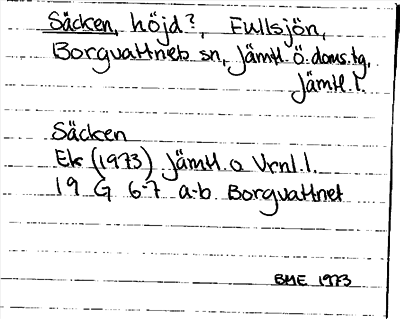 Säcken, höjd?, Fullsjön,
Borgvattnets sn, Jämtl. Ö. doms. tg,
Jämtl. l.
Säcken
Ek (1973) Jämtl. o Vrnl. l.
19 G 6-7 a-b Borgvattnet
BME 1973